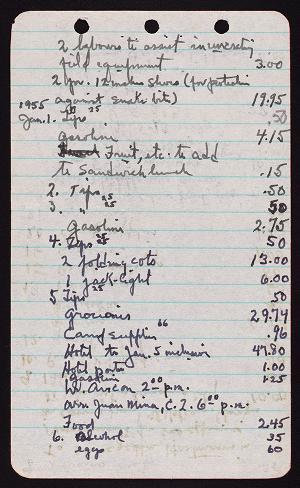 2 labourers to assist in inventing
field equipment 3.00
2 pr. 12 inch shoes (for protection
against snake bite) 19.95
1955
Jan. 1. Tips 25 .50
Gasoline 4.15
Fruit, etc. to add
to Sandwich lunch .15
2. Tips .50
3. " 25 25 50
Gasoline 2.75
4. Tips 25 25 50
2 folding cots 13.00
1 jack-light 6.00
5 Tips 25 50
Groceries 29.74
Camp supplies 66 .96
Hotel to Jan. 5 inclusive 47.80
Hotel porter 1.00
Gasoline 1.25
Lv. Ancon 2 00 p.m.
arr. Juan Mina, C.Z. 6 00 p.m.
Food 2.45
6. Alcohol 35
eggs 60